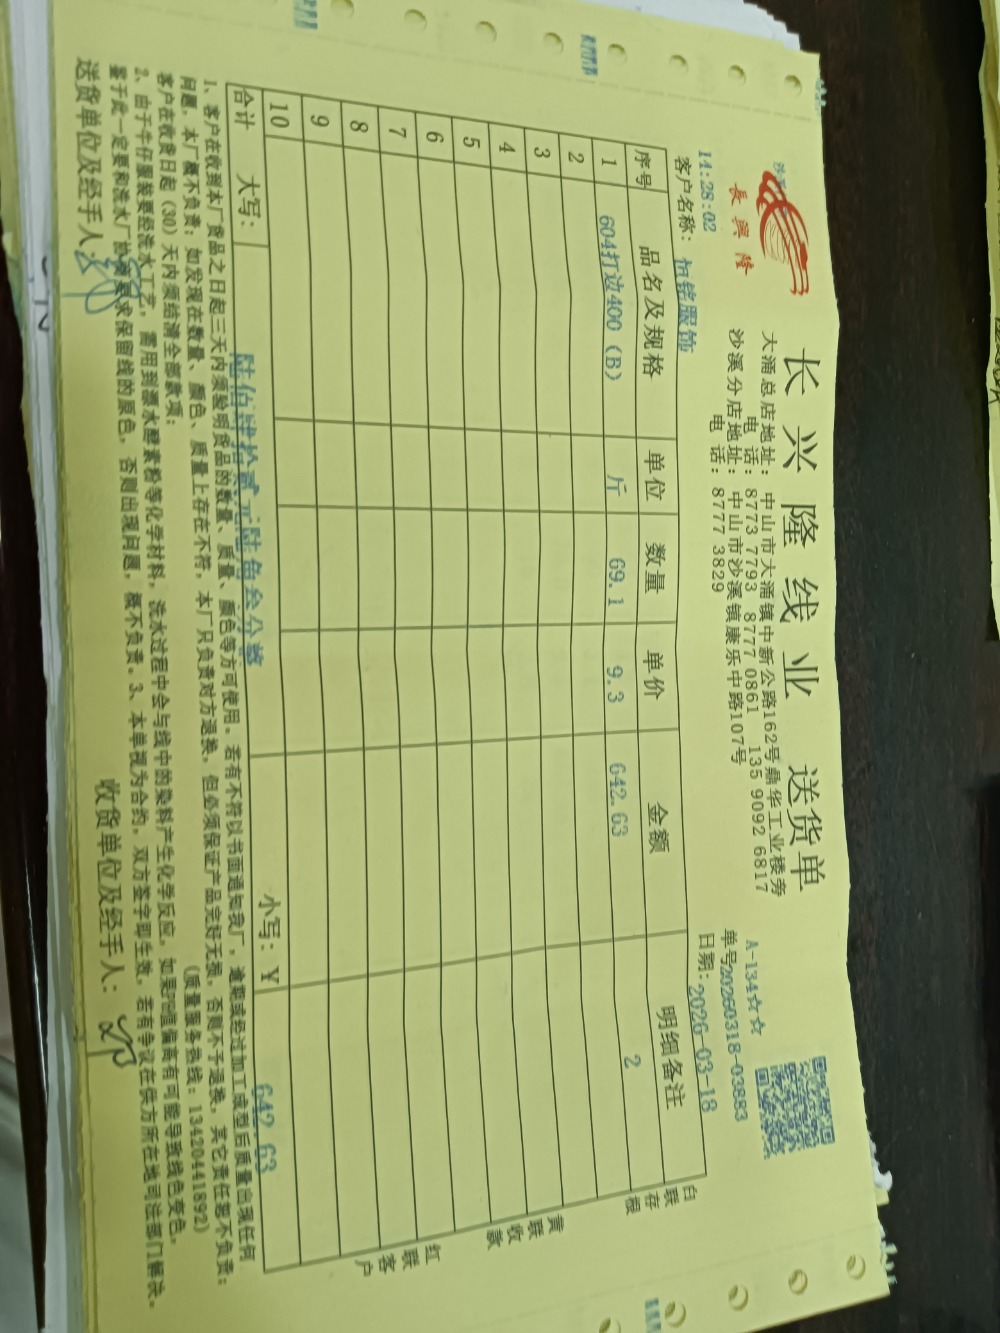 長興隆
长兴隆线业 送货单
大涌总店地址: 中山市大涌镇中新公路162号鼎华工业楼旁
电话: 8773 7793 8777 0861 135 9092 6817
沙溪分店地址: 中山市沙溪镇康乐中路107号
电话: 8777 3829
A-134☆☆
单号20260318-03883
14:28:02
日期: 2026-03-18
客户名称: 恒铭服饰
序号 品名及规格 单位 数量 单价 金额 明细备注
1 604打边400 (B) 斤 69.1 9.3 642.63 2
2
3
4
5
6
7
8
9
10
合计 大写: 陆佰肆拾贰元陆角叁分整 小写: ¥ 642.63
白联存根
黄联收款
红联客户
1、客户在收到本厂货品之日起三天内须验明货品的数量、质量、颜色等方可使用。若有不符以书面通知我厂, 逾期或经过加工成型后质量出现任何
问题, 本厂概不负责; 如发现在数量、颜色、质量上存在不符, 本厂只负责对方退换, 但必须保证产品完好无损, 否则不予退换, 其它责任恕不负责;
客户在收货日起 (30) 天内须结清全部款项; (质量服务热线: 13420441892)
2、由于牛仔服装要经洗水工艺, 需用到漂水酵素粉等化学材料, 洗水过程中会与线中的染料产生化学反应, 如果PH值偏高有可能导致线色变色,
鉴于此一定要和洗水厂协商要求保留线的原色, 否则出现问题, 概不负责。3、本单视为合约, 双方签字即生效, 若有争议在供方所在地司法部门解决。
送货单位及经手人: 收货单位及经手人: